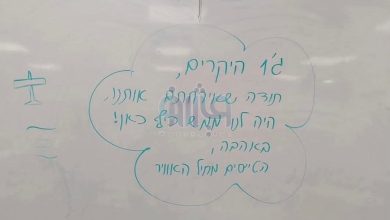 ג'1 היקרים,
תודה שאירחתם אותנו.
היה לנו ממש כיף כאן!
באהבה,
הטייסים מחיל האוויר